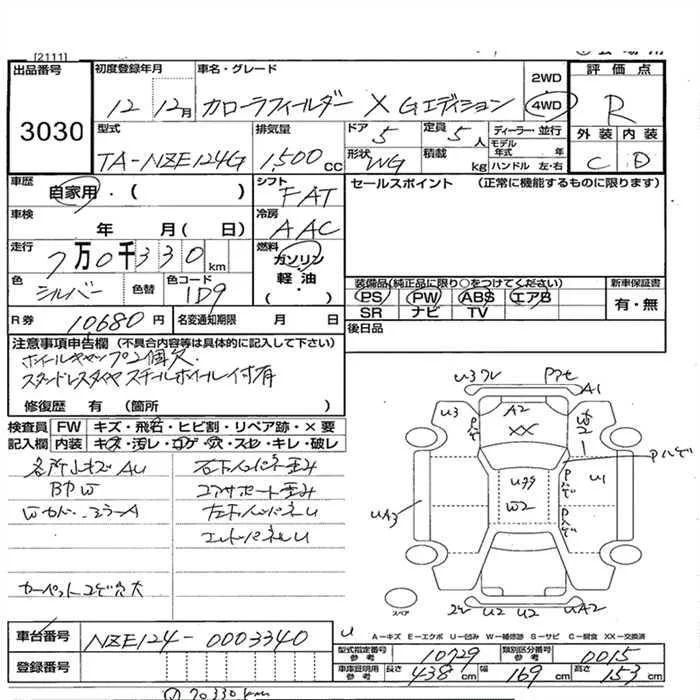 [2111]
出品番号 初度登録年月 車名・グレード 2WD 評価点
3030 12 12月 カローラフィールダー X Gエディション 4WD R
型式 排気量 ドア 5 定員 5人 ディーラー・並行 外装 内装
TA-NZE124G 1,500cc 形状 WG 積載 kg モデル年式 年 ハンドル 左・右 C D
車歴 自家用・( ) シフト FAT セールスポイント (正常に機能するものに限ります)
車検 年 月( 日) 冷房 AAC
走行 7万0千330km 燃料 ガソリン 軽油 ・( )
色 シルバー 色替 色コード 1D9
装備品(純正品に限り○をつけてください) 新車保証書
PS PW ABS エアB 有・無
SR ナビ TV
R券 10680円 名変通知期限 月 日 後日品
注意事項申告欄 (不具合内容等は具体的に記入して下さい)
ホイールキャップ2個欠.
スタッドレスタイヤ スチールホイール付有
修復歴 有 (箇所 )
検査員 FW キズ・飛石・ヒビ割・リペア跡・×要
記入欄 内装 キズ・汚レ・コゲ・穴・スレ・キレ・破レ
各所小キズAU 右下インパネ歪み
BPW コアサポート歪み
Wカド.ミラーA 左下インパネU
エンドパネルU
カーペットコゲ穴大
U3 フレ Pアセ A1
U3 A2 W2 Pハゼ
XX
Pハゼ U1
U99
W2 Pハゼ
UA3
スペア 2U U2 U2 UA2
車台番号 NZE124-0003340
U A-キズ E-エクボ U-凹み W-補修跡 S-サビ C-腐食 XX-交換済
型式指定番号 参考 10729 類別区分番号 参考 0015
登録番号 車庫証明用 参考 長さ 438cm 幅 169cm 高さ 153cm
70330km